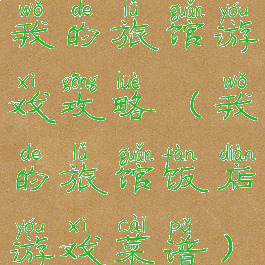 wǒ de lǚ guǎn yóu
我的旅馆游
xì gōng lüè wǒ
戏攻略（我
de lǚ guǎn fàn diàn
的旅馆饭店
yóu xì cài pǔ
游戏菜谱）